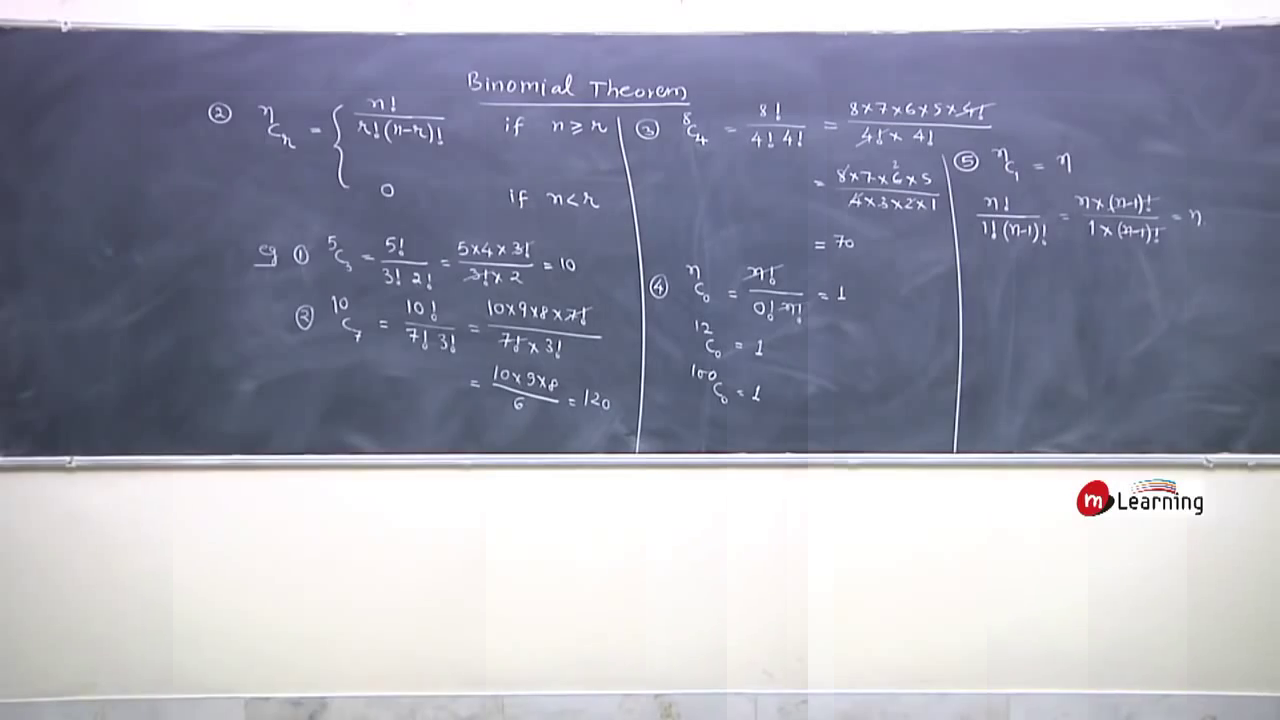 Binomial Theorem
② ⁿCᵣ = { n! / r!(n-r)! if n ≥ r
0 if n < r
eg ① ⁵C₃ = 5! / 3! 2! = 5×4×3! / 3!×2 = 10
② ¹⁰C₇ = 10! / 7! 3! = 10×9×8×7! / 7!×3!
= 10×9×8 / 6 = 120
③ ⁸C₄ = 8! / 4! 4! = 8×7×6×5×4! / 4!×4!
= 8×7×6×5 / 4×3×2×1
2
= 70
④ ⁿC₀ = n! / 0! n! = 1
¹²C₀ = 1
¹⁰⁰C₀ = 1
⑤ ⁿC₁ = n
n! / 1!(n-1)! = n×(n-1)! / 1×(n-1)! = n.
m Learning